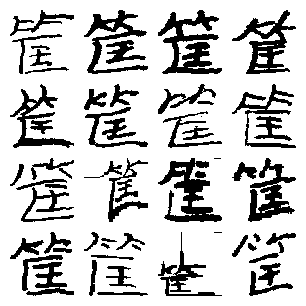 筐筐筐筐
筐筐筐筐
筐筐筐筐
筐筐筐筐